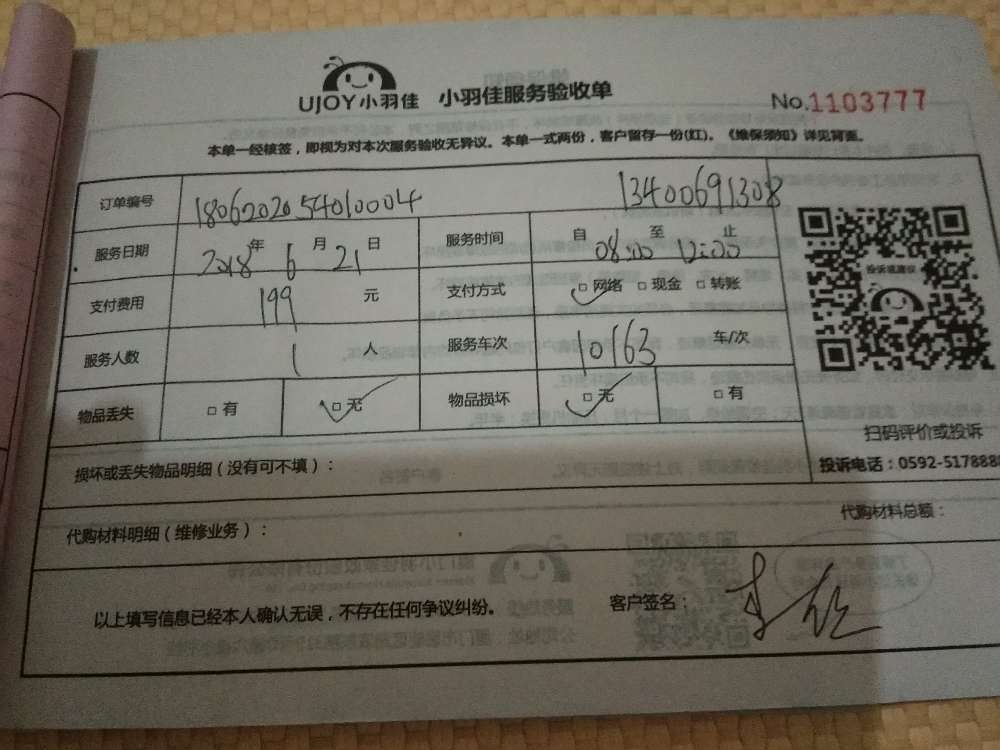 UJOY小羽佳 小羽佳服务验收单
No.1103777
本单一经核签，即视为对本次服务验收无异议。本单一式两份，客户留存一份(红)。《维保须知》详见背面。
订单编号 1806202054010004 13400691308
服务日期 2018年6月21日 服务时间 自08:00至12:00止
支付费用 199元 支付方式 □网络 □现金 □转账
投诉或建议
服务人数 1人 服务车次 10163 车/次
物品丢失 □有 □无 物品损坏 □无 □有
扫码评价或投诉
损坏或丢失物品明细（没有可不填）：
投诉电话：0592-5178888
代购材料明细（维修业务）： 代购材料总额：
以上填写信息已经本人确认无误，不存在任何争议纠纷。 客户签名：